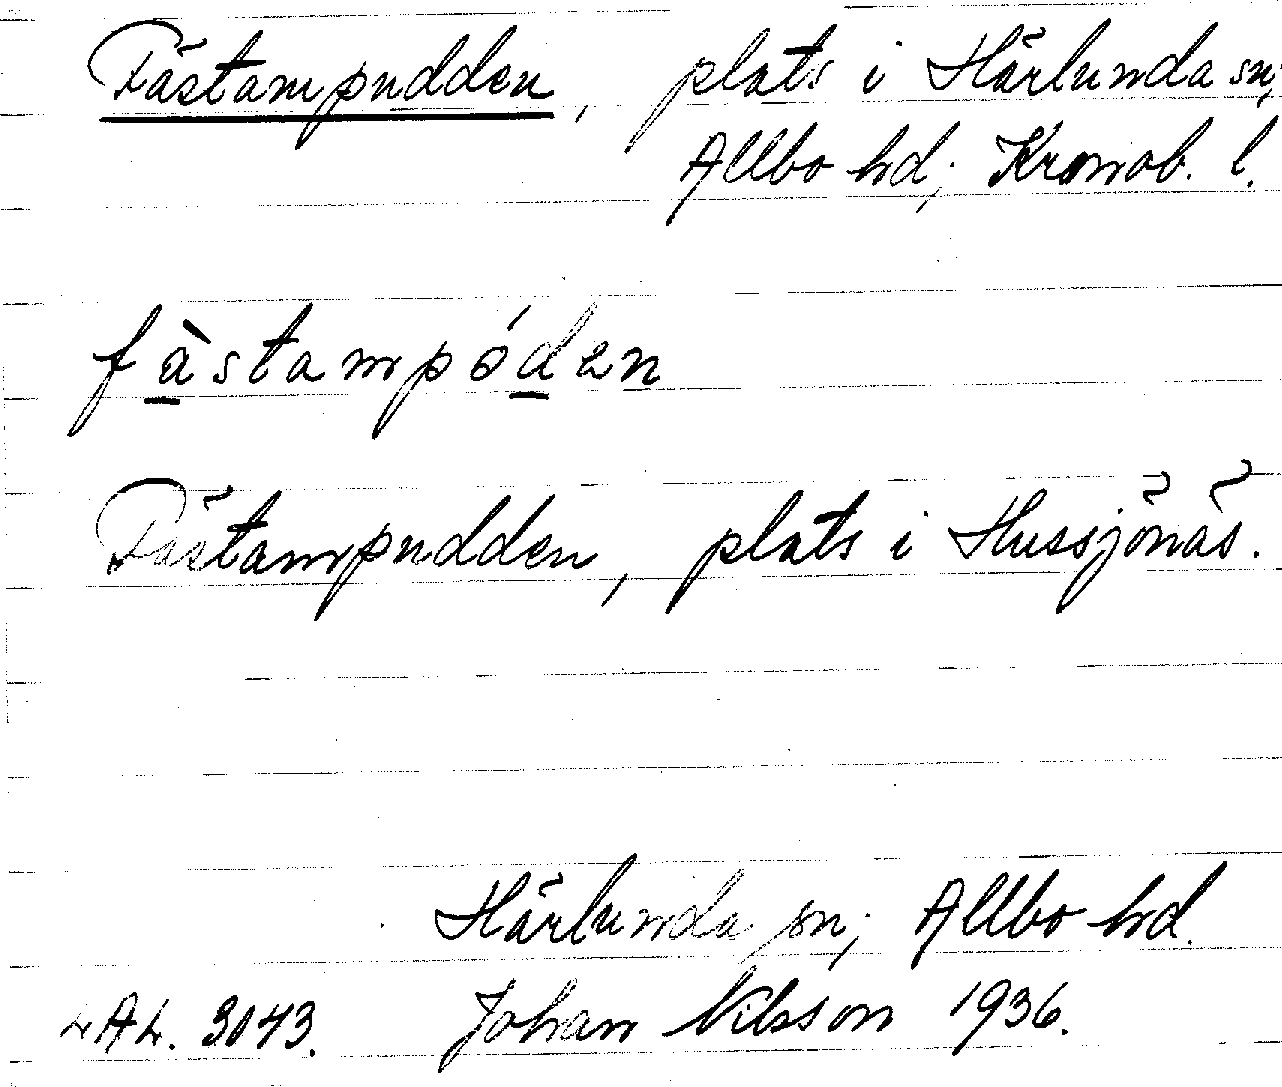 Fästampudden, plats i Härlunda sn;
Allbo hd; Kronob. l.
fàstampóden
Fästampudden, plats i Hussjönäs.
Härlunda sn; Allbo hd.
LAL. 3043. Johan Nilsson 1936.